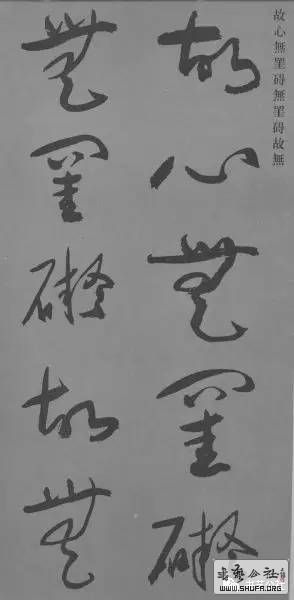 故心無罣碍無罣碍故無
故心無罣礙
無罣礙故無
書藝公社
WWW.SHUFA.ORG